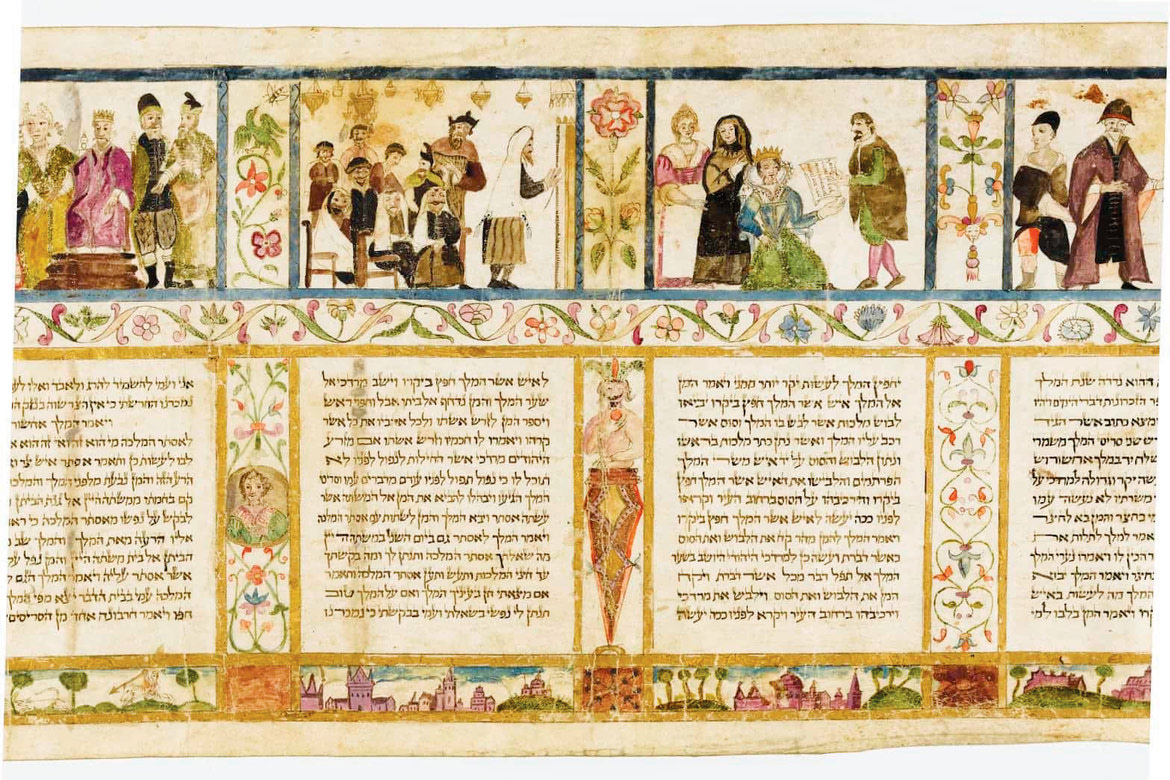 ההוא נדדה שנת המלך
ספר הזכרנות דברי הימים והיו
וימצא כתוב אשר הגיד
ותרש שני סריסי המלך משמרי
לשלח יד במלך אחשורוש
יקר וגדולה למרדכי על
משרתיו לא נעשה עמו
מי בחצר והמן בא לחצר
לאמר למלך לתלות את
הכין לו ויאמרו נערי המלך
בחצר ויאמר המלך יבוא
המלך מה לעשות באיש
ביקרו ויאמר המן בלבו למי
יחפץ המלך לעשות יקר יותר ממני ויאמר המן
אל המלך איש אשר המלך חפץ ביקרו יביאו
לבוש מלכות אשר לבש בו המלך וסוס אשר
רכב עליו המלך ואשר נתן כתר מלכות בראשו
ונתון הלבוש והסוס על יד איש משרי המלך
הפרתמים והלבישו את האיש אשר המלך חפץ
ביקרו והרכיבהו על הסוס ברחוב העיר וקראו
לפניו ככה יעשה לאיש אשר המלך חפץ ביקרו
ויאמר המלך להמן מהר קח את הלבוש ואת הסוס
כאשר דברת ועשה כן למרדכי היהודי היושב בשער
המלך אל תפל דבר מכל אשר דברת ויקח
המן את הלבוש ואת הסוס וילבש את מרדכי
וירכיבהו ברחוב העיר ויקרא לפניו ככה יעשה
לאיש אשר המלך חפץ ביקרו וישב מרדכי אל
שער המלך והמן נדחף אל ביתו אבל וחפוי ראש
ויספר המן לזרש אשתו ולכל אהביו את כל אשר
קרהו ויאמרו לו חכמיו וזרש אשתו אם מזרע
היהודים מרדכי אשר החלות לנפול לפניו לא
תוכל לו כי נפול תפול לפניו עודם מדברים עמו וסריסי
המלך הגיעו ויבהלו להביא את המן אל המשתה אשר
עשתה אסתר ויבא המלך והמן לשתות עם אסתר המלכה
ויאמר המלך לאסתר גם ביום השני במשתה היין
מה שאלתך אסתר המלכה ותנתן לך ומה בקשתך
עד חצי המלכות ותעש ותען אסתר המלכה ותאמר
אם מצאתי חן בעיניך המלך ואם על המלך טוב
תנתן לי נפשי בשאלתי ועמי בבקשתי כי נמכרנו
אני ועמי להשמיד להרוג ולאבד ואלו
נמכרנו החרשתי כי אין הצר שוה בנזק
ויאמר המלך אחשורוש
לאסתר המלכה מי הוא זה ואי זה הוא
לבו לעשות כן ותאמר אסתר איש צר
הרע הזה והמן נבעת מלפני המלך והמלכה
קם בחמתו ממשתה היין אל גנת הביתן
לבקש על נפשו מאסתר המלכה כי ראה
אליו הרעה מאת המלך והמלך שב
הביתן אל בית משתה היין והמן נפל על
אשר אסתר עליה ויאמר המלך הגם
המלכה עמי בבית הדבר יצא מפי המלך
חפו ויאמר חרבונה אחד מן הסריסים